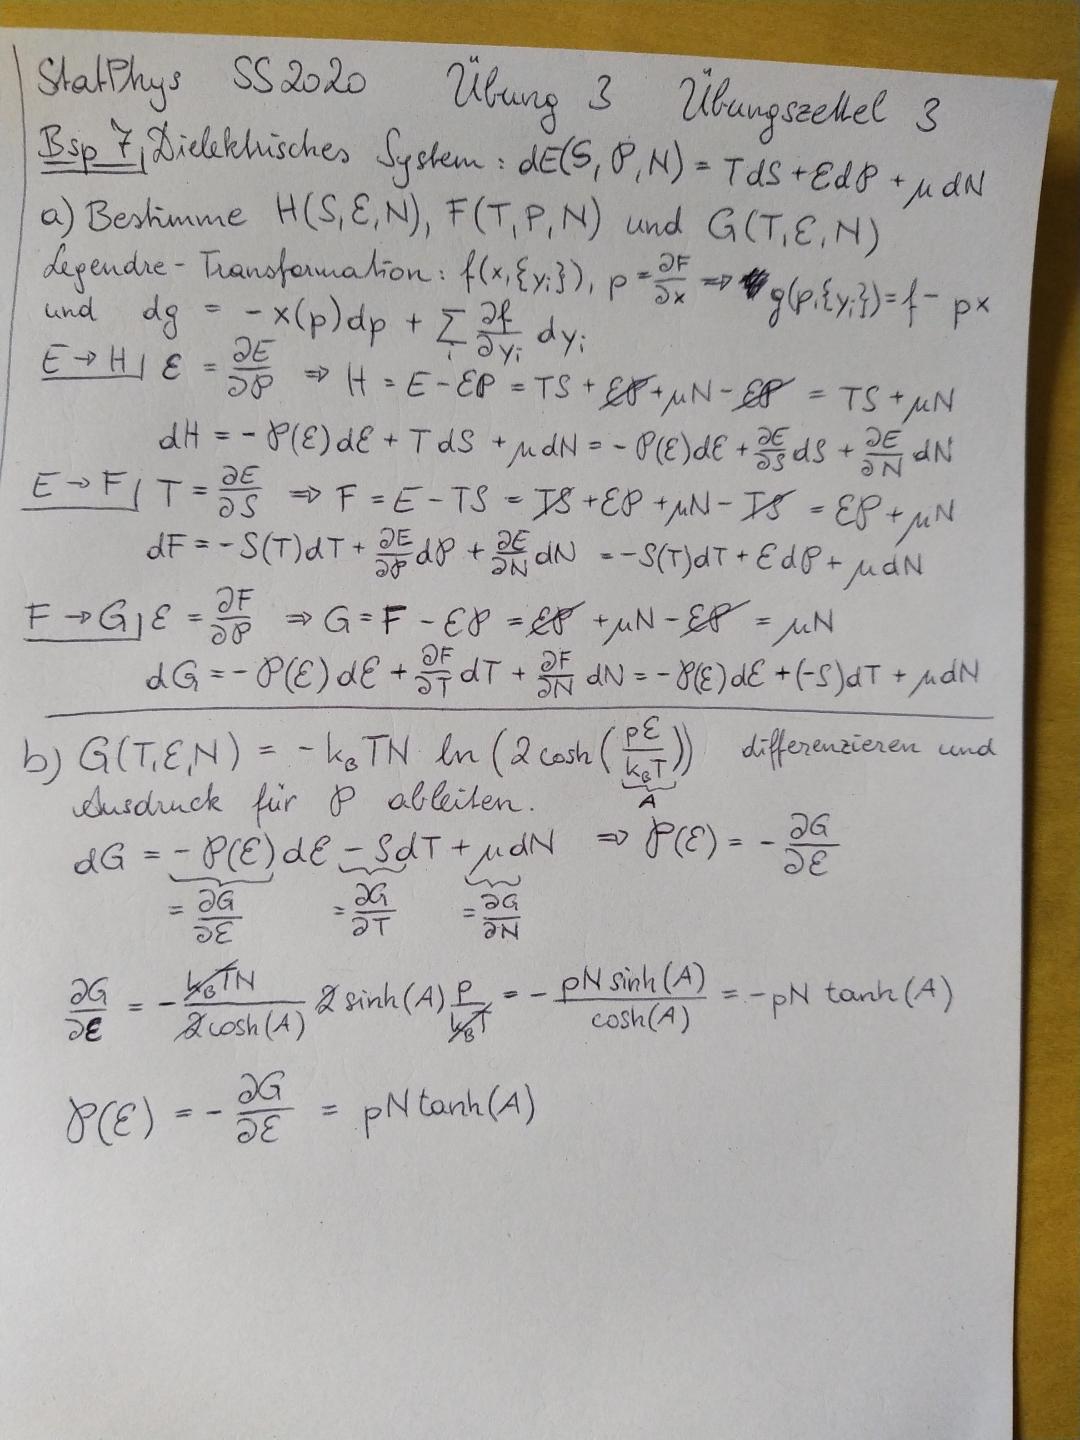 StatPhys SS2020 Übung 3 Übungszettel 3
Bsp 7, Dielektrisches System: dE(S,P,N) = TdS + ℰdP + μdN
a) Bestimme H(S,ℰ,N), F(T,P,N) und G(T,ℰ,N)
Legendre-Transformation: f(x,{yᵢ}), p = ∂F/∂x ⇒ g(p,{yᵢ}) = f - px
und dg = -x(p)dp + Σᵢ ∂f/∂yᵢ dyᵢ
E → H| ℰ = ∂E/∂P ⇒ H = E - ℰP = TS + ℰP + μN - ℰP = TS + μN
dH = -P(ℰ)dℰ + TdS + μdN = -P(ℰ)dℰ + ∂E/∂S dS + ∂E/∂N dN
E → F| T = ∂E/∂S ⇒ F = E - TS = TS + ℰP + μN - TS = ℰP + μN
dF = -S(T)dT + ∂E/∂P dP + ∂E/∂N dN = -S(T)dT + ℰdP + μdN
F → G| ℰ = ∂F/∂P ⇒ G = F - ℰP = ℰP + μN - ℰP = μN
dG = -P(ℰ)dℰ + ∂F/∂T dT + ∂F/∂N dN = -P(ℰ)dℰ + (-S)dT + μdN
b) G(T,ℰ,N) = -k_B TN ln(2cosh(pℰ/k_B T)) differenzieren und
A
Ausdruck für P ableiten.
dG = -P(ℰ)dℰ - SdT + μdN ⇒ P(ℰ) = -∂G/∂ℰ
= ∂G/∂ℰ = ∂G/∂T = ∂G/∂N
∂G/∂ℰ = - k_B TN / 2cosh(A) 2 sinh(A) p/k_B T = - pN sinh(A)/cosh(A) = -pN tanh(A)
P(ℰ) = -∂G/∂ℰ = pN tanh(A)